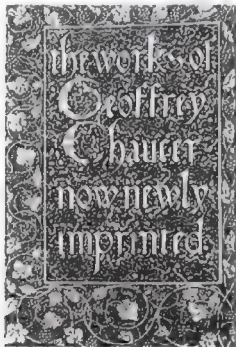 the works of
Geoffrey
Chaucer
now newly
imprinted